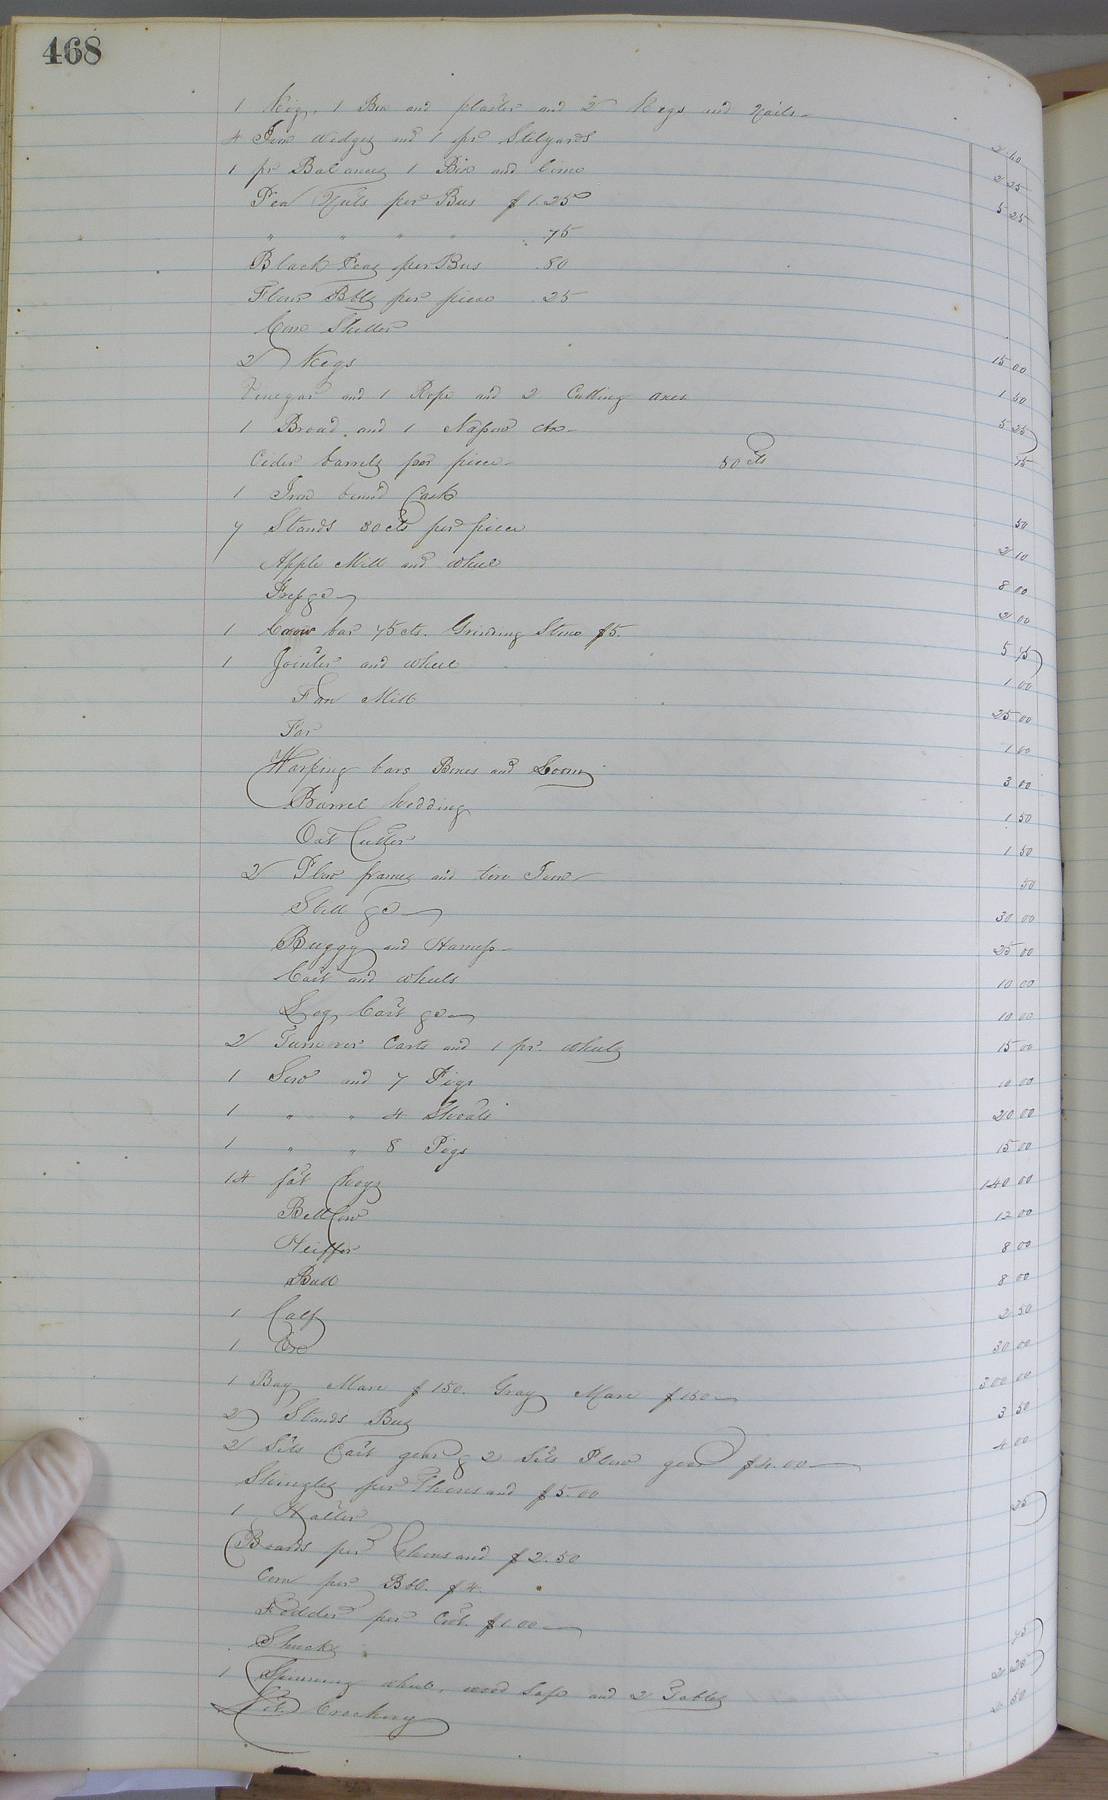 468
1 Keg. 1 Box and plaster and 2 Kegs and Nails 2 40
4 Iron Wedges and 1 pr Stilyards 2 25
1 pr Balances 1 Box and lime 5 25
Pea Nuts per Bus $1.25
" " " " .75
Black Peas per Bus .80
Flour Bbls per piece .25
Corn Sheller 15 00
2 Kegs 1 50
Vinegar and 1 Rope and 2 Cutting axes 5 25
1 Broad and 1 Narrow Ax 75
Cider barrels per piece 50 cts
1 Iron bound Cask 50
7 Stands 30 cts per piece 2 10
Apple Mill and wheel 8 00
Press &c 2 00
1 Crow bar 75 cts. Grinding Stone $5. 5 75
1 Jointer and wheel 1 00
Fan Mill 25 00
Tar 1 00
Warping bars Boxes and Loom 3 00
Barrel hedding 1 50
Oat Cutter 1 50
2 Plow frames and two Iron 50
Still &c 30 00
Buggy and Harness 25 00
Cart and wheels 10 00
Log Cart &c 10 00
2 Turnover Carts and 1 pr. wheels 15 00
1 Sow and 7 Pigs 10 00
1 " " 4 Shoats 20 00
1 " " 8 Pigs 15 00
14 fat hogs 140 00
Bell Cow 12 00
Heiffer 8 00
Bull 8 00
1 Calf 2 50
1 Ox 30 00
1 Bay Mare $150. Gray Mare $150 300 00
2 Stands Bees 3 50
2 Sets Cart gear & 2 Sets Plow gear $4.00 4 00
Shingles per Thousand $5.00
1 Halter 25
Boards per Thousand $2.50
Corn per Bbl. $4.
Fodder per Cwt. $1.00
Shucks 75
1 Spinning wheel, wood Safe and 2 Tables 2 25
Lot Crockery 2 50